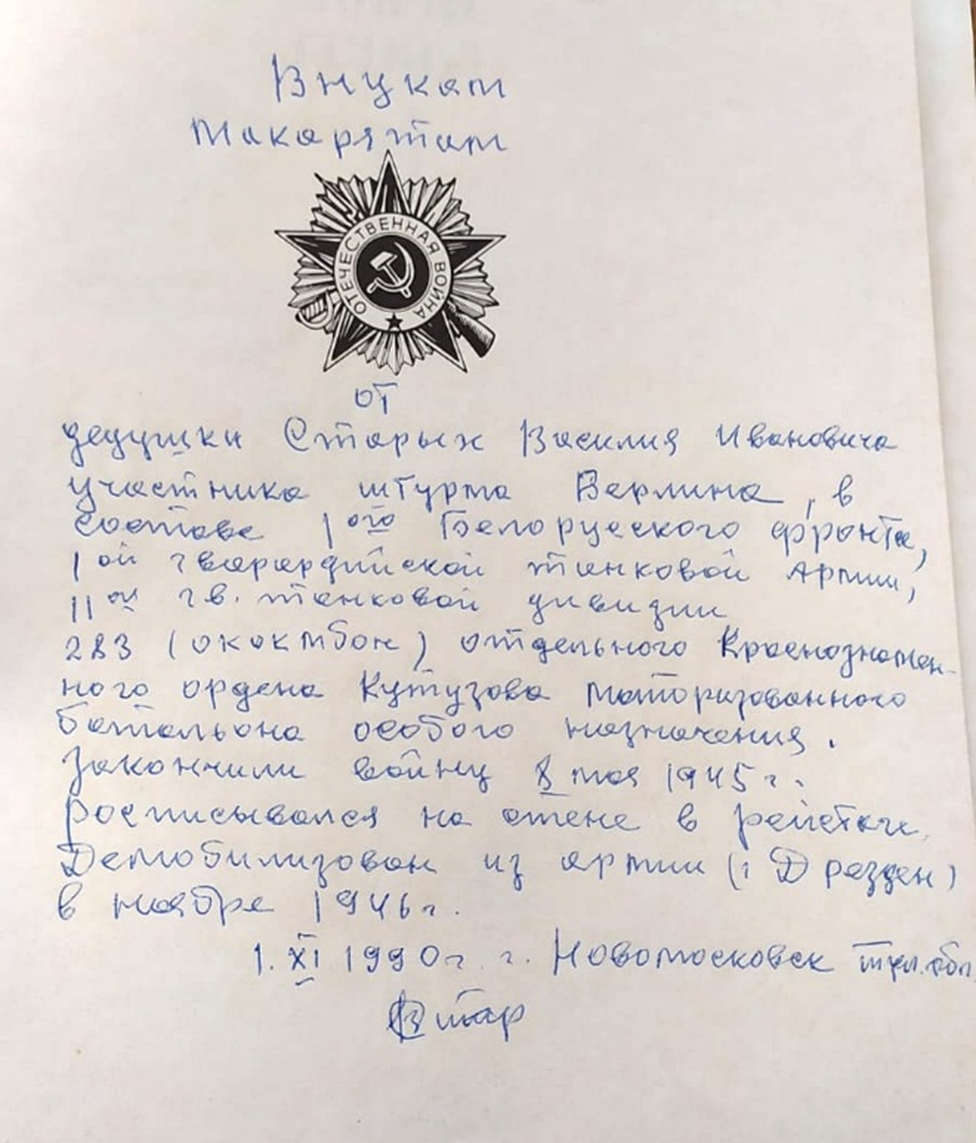 Внукам
Макарятам
ОТЕЧЕСТВЕННАЯ ВОЙНА
от
дедушки Старых Василия Ивановича
участника штурма Берлина, в
составе 1ого Белоруского фронта,
1ой гварардийской танковой Армии,
11ой гв. танковой дивизии
283 (ококтбон) отдельного Краснознамен-
ного ордена Кутузова моторизованного
батальона особого назначения.
Закончили войну 8 мая 1945 г.
росписывался на стене в рейстаге.
Демобилизован из армии (г Дрезден)
в ноябре 1946г.
1. XI 1990г. г. Новомосковск тул. обл